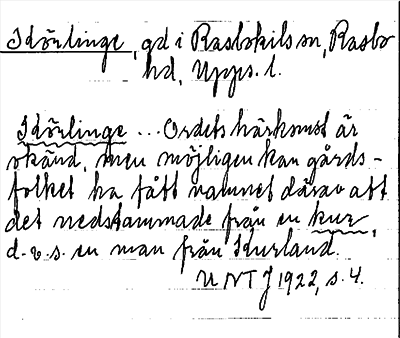 Körlinge, gd i Rasbokils sn, Rasbo
hd, Upps. l.
Körlinge ... Ordets härkomst är
okänd, men möjligen kan gårds-
folket ha fått namnet därav att
det nedstammade från en kur,
d.v.s. en man från Kurland.
UNT J 1922, s. 4.